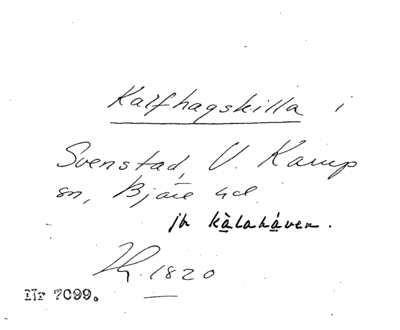 Kalfhagskilla i
Svenstad, V. Karup
sn, Bjäre hd.
jfr kàlahàven.
1820
Nr 7099.